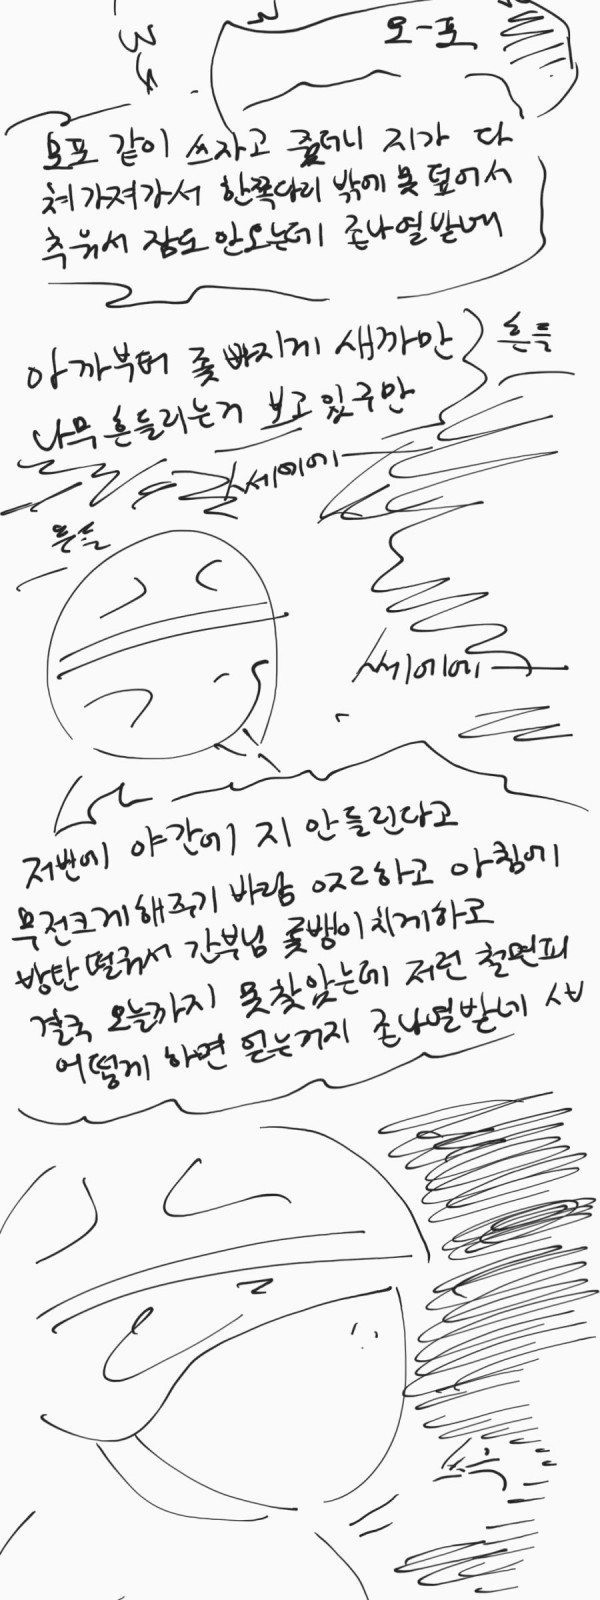 모-포
모포 같이 쓰자고 줬더니 지가 다
쳐가져가서 한쪽다리 밖에 못 덮어서
추워서 잠도 안오는데 존나열받네
아까부터 좆빠지게 새까만
나무 흔들리는거 보고있구만
흔들
쎄에에
흔들
쎄에에
저번에 야간에 지 안들린다고
무전크게해주기 바람 ㅇㅈㄹ하고 아침에
방탄 떨궈서 간부님 좆뱅이치게하로
결국 오늘까지 못찾았는데 저런 철면피
어떻게 하면 얻는거지 존나열받네 ㅅㅂ
스윽